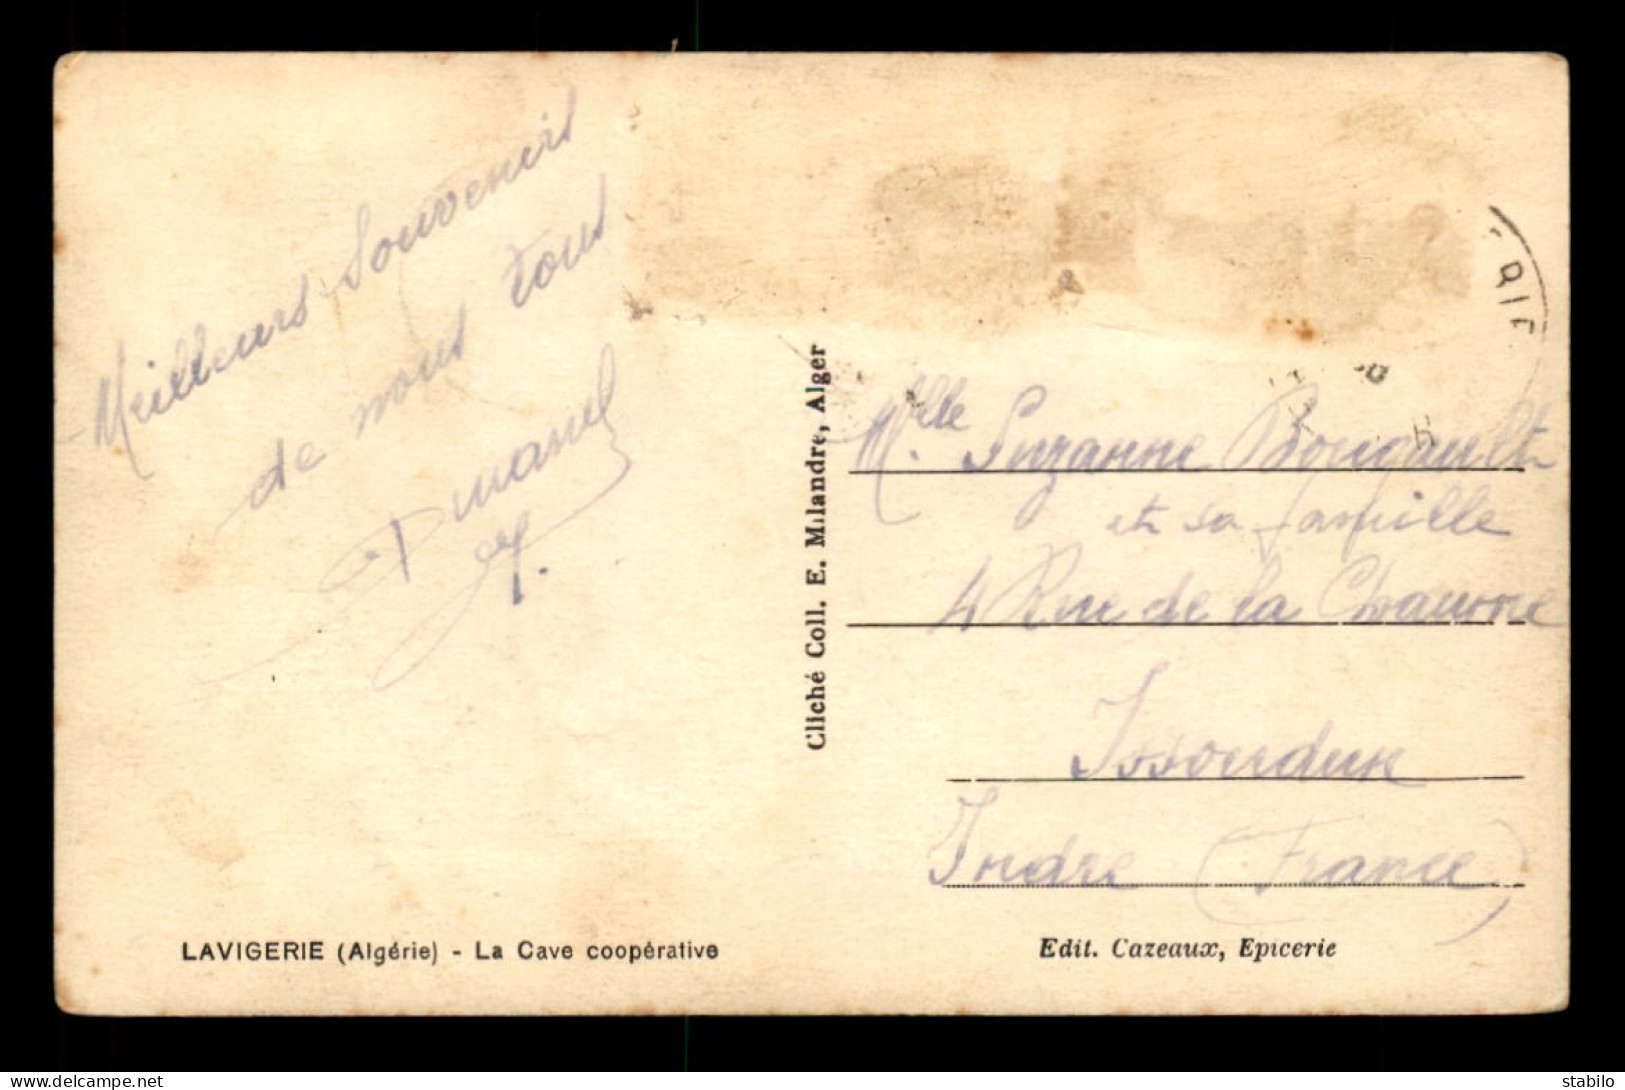 Meilleurs Souvenirs
de nous tous
Cliché Coll. E. Milandre, Alger
Mlle Suzanne Bougault
et sa famille
4 Rue de la Chaume
Issoudun
Indre (France)
LAVIGERIE (Algérie) - La Cave coopérative
Edit. Cazeaux, Epicerie
www.delcampe.net
stabilo